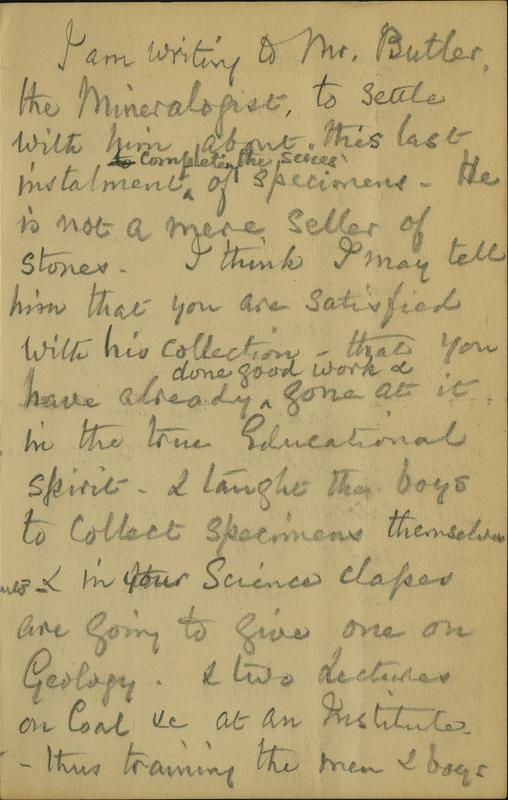 I am writing to Mr. Butler,
the Mineralogist, to settle
with him about this last
to completing the series
instalment ^ of specimens - He
is not a mere seller of
stones - I think I may tell
him that you are satisfied
with his collection - that you
done good work &
have already ^ gone at it
in the true Educational
spirit - & taught the boys
to collect specimens themselves
- & in your Science classes
are going to give one on
Geology. & two Lectures
on Coal &c at an Institute.
- thus training the men & boys